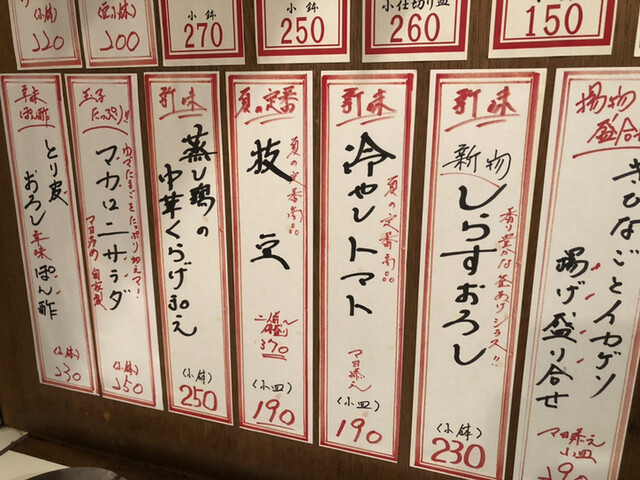 小鉢
150
小仕切り皿
260
小鉢
250
小鉢
270
200
(小鉢)
220
揚物
盛合せ
きびなごとイカゲソ
揚げ盛り合せ
マヨ添え
小皿
290
新味
新物
しらすおろし
香り豊かな釜あげシラス!!
(小鉢)
230
新味
冷やしトマト
夏の定番商品
マヨ添え
(小皿)
190
夏の定番
枝豆
夏の定番商品
370
(小皿)
190
新味
蒸し鶏の
中華くらげ和え
(小鉢)
250
玉子
たっぷり!!
ゆでたまごをたっぷり和えマ!
マカロニサラダ
マヨ多めの自家製
(小鉢)
250
辛味
ぽん酢
とり皮
おろし辛味ぽん酢
(小鉢)
230